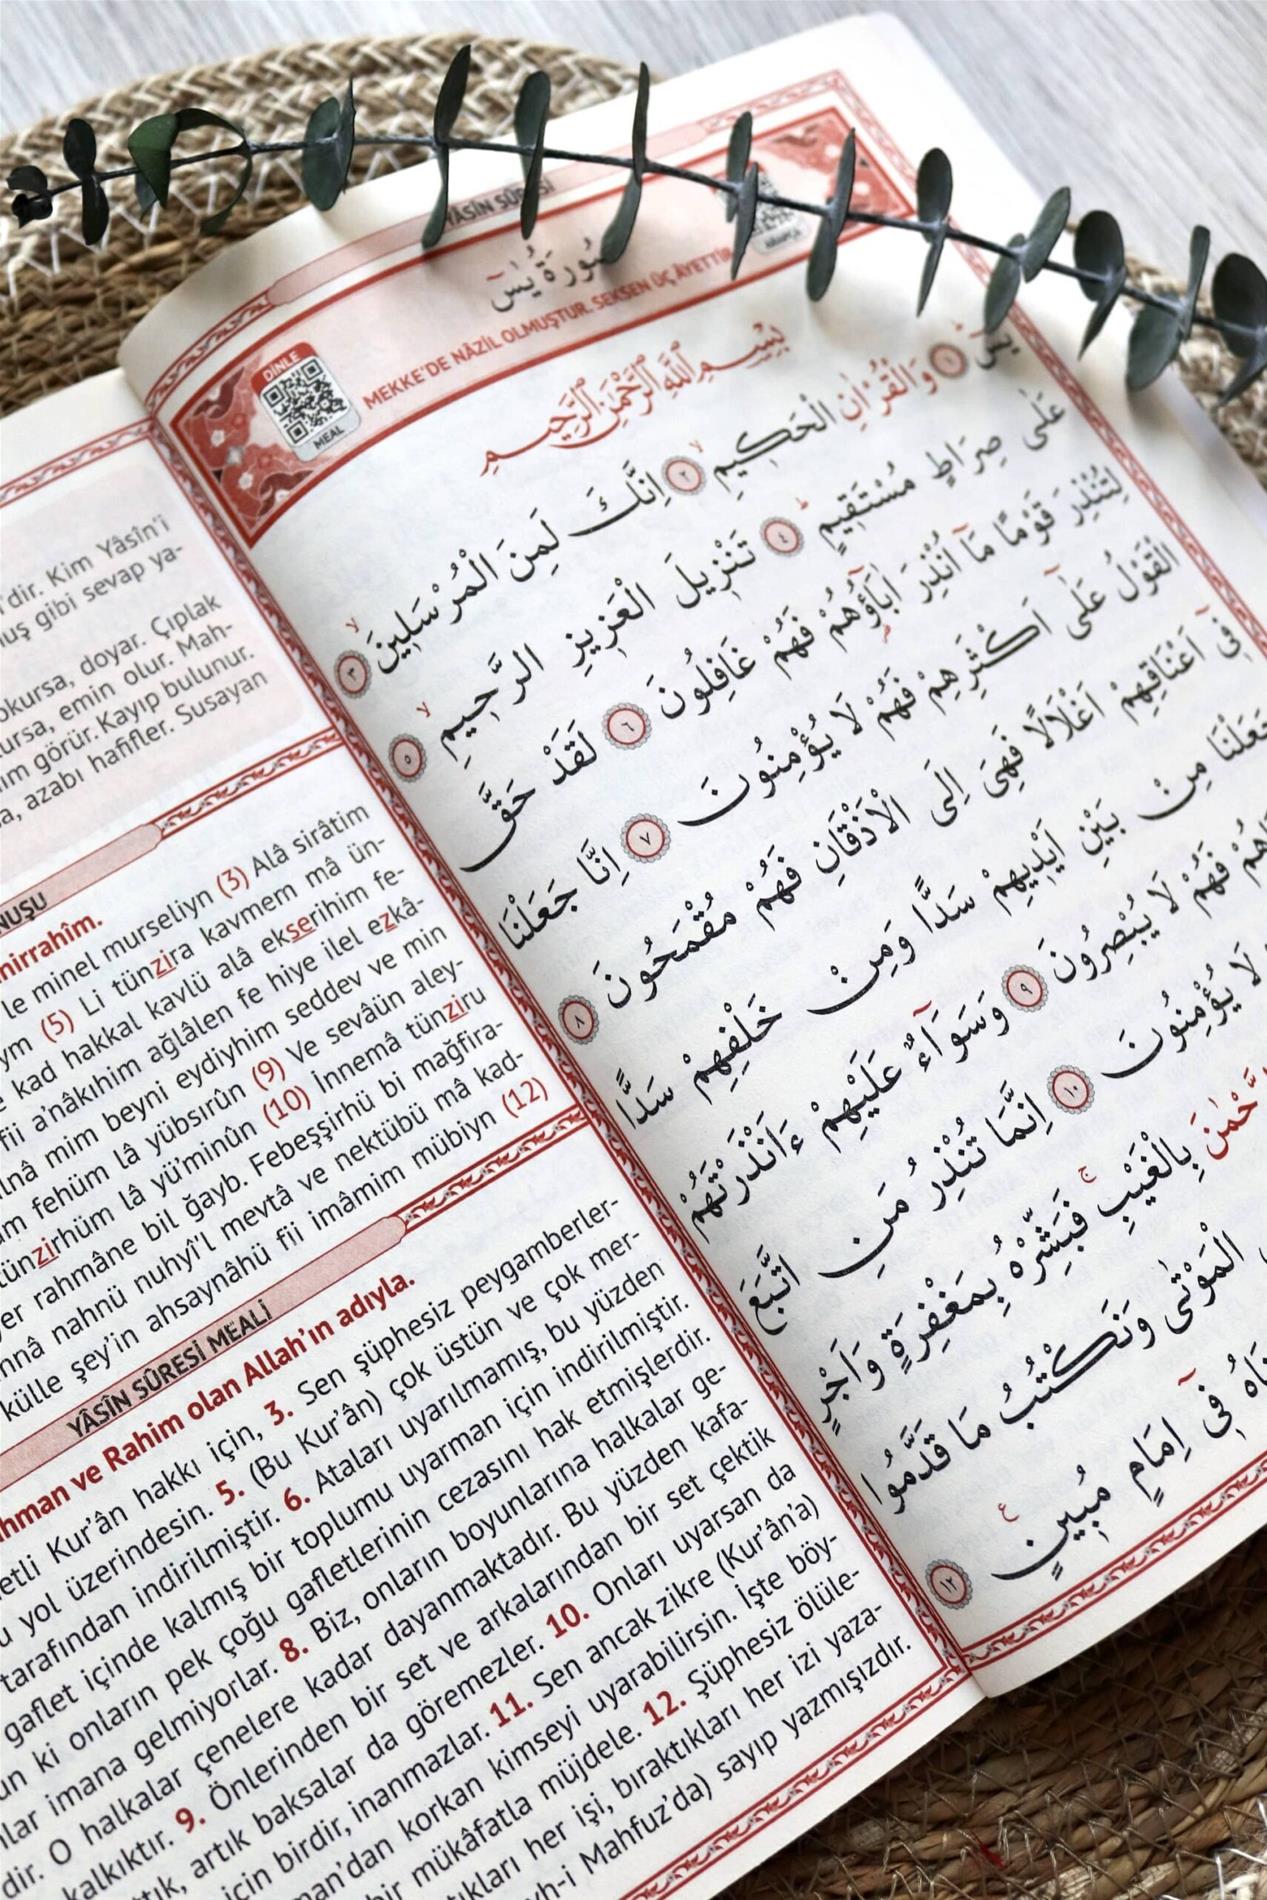 'dir. Kim Yâsîn'i
gibi sevap ya-
okursa, doyar. Çıplak
emin olur. Mah-
görür. Kayıp bulunur.
azabı hafifler. Susayan
le minel murseliyn (3) Alâ sirâtim
(5) Li tünzira kavmem mâ ün-
kad hakkal kavlü alâ ekserihim fe-
fii a'nâkıhim ağlâlen fe hiye ilel ezkâ-
mim beyni eydiyhim seddev ve min
fehüm lâ yübsırûn (9) Ve sevâün aley-
tünzirhüm lâ yü'minûn (10) İnnemâ tünziru
rahmâne bil ğayb. Febeşşirhü bi mağfira-
nahnü nuhyi'l mevtâ ve nektübü mâ kad-
külle şey'in ahsaynâhü fii imâmim mübiyn (12)
YÂSÎN SÛRESİ MEALİ
ve Rahim olan Allah'ın adıyla.
Kur'ân hakkı için, 3. Sen şüphesiz peygamberler-
yol üzerindesin. 5. (Bu Kur'ân) çok üstün ve çok mer-
tarafından indirilmiştir. 6. Ataları uyarılmamış, bu yüzden
gaflet içinde kalmış bir toplumu uyarman için indirilmiştir.
ki onların pek çoğu gafletlerinin cezasını hak etmişlerdir.
imana gelmiyorlar. 8. Biz, onların boyunlarına halkalar ge-
O halkalar çenelere kadar dayanmaktadır. Bu yüzden kafa-
kalkıktır. 9. Önlerinden bir set ve arkalarından bir set çektik
artık baksalar da göremezler. 10. Onları uyarsan da
için birdir, inanmazlar. 11. Sen ancak zikre (Kur'ân'a)
korkan kimseyi uyarabilirsin. İşte böy-
bir mükâfatla müjdele. 12. Şüphesiz ölüle-
her işi, bıraktıkları her izi yaza-
Mahfuz'da) sayıp yazmışızdır.
YÂSÎN SÛRESİ
سُورَةُ يٰسٓ
DİNLE
MEAL
MEKKE'DE NÂZİL OLMUŞTUR. SEKSEN ÜÇ ÂYETTİR
بِسْمِ اللّٰهِ الرَّحْمٰنِ الرَّحِيمِ
يٰسٓ ۝١ وَالْقُرْاٰنِ الْحَكِيمِ ۝٢ اِنَّكَ لَمِنَ الْمُرْسَلِينَ ۝٣
عَلٰى صِرَاطٍ مُسْتَقِيمٍ ۝٤ تَنْزِيلَ الْعَزِيزِ الرَّحِيمِ ۝٥
لِتُنْذِرَ قَوْمًا مَٓا اُنْذِرَ اٰبَٓاؤُهُمْ فَهُمْ غَافِلُونَ ۝٦ لَقَدْ حَقَّ
الْقَوْلُ عَلٰٓى اَكْثَرِهِمْ فَهُمْ لَا يُؤْمِنُونَ ۝٧ اِنَّا جَعَلْنَا
فِٓي اَعْنَاقِهِمْ اَغْلَالًا فَهِيَ اِلَى الْاَذْقَانِ فَهُمْ مُقْمَحُونَ ۝٨
مِنْ بَيْنِ اَيْدِيهِمْ سَدًّا وَمِنْ خَلْفِهِمْ سَدًّا
فَهُمْ لَا يُبْصِرُونَ ۝٩ وَسَوَٓاءٌ عَلَيْهِمْ ءَاَنْذَرْتَهُمْ
لَا يُؤْمِنُونَ ۝١٠ اِنَّمَا تُنْذِرُ مَنِ اتَّبَعَ
بِالْغَيْبِ فَبَشِّرْهُ بِمَغْفِرَةٍ وَاَجْرٍ
الْمَوْتٰى وَنَكْتُبُ مَا قَدَّمُوا
فِٓي اِمَامٍ مُبِينٍ ۝١٢